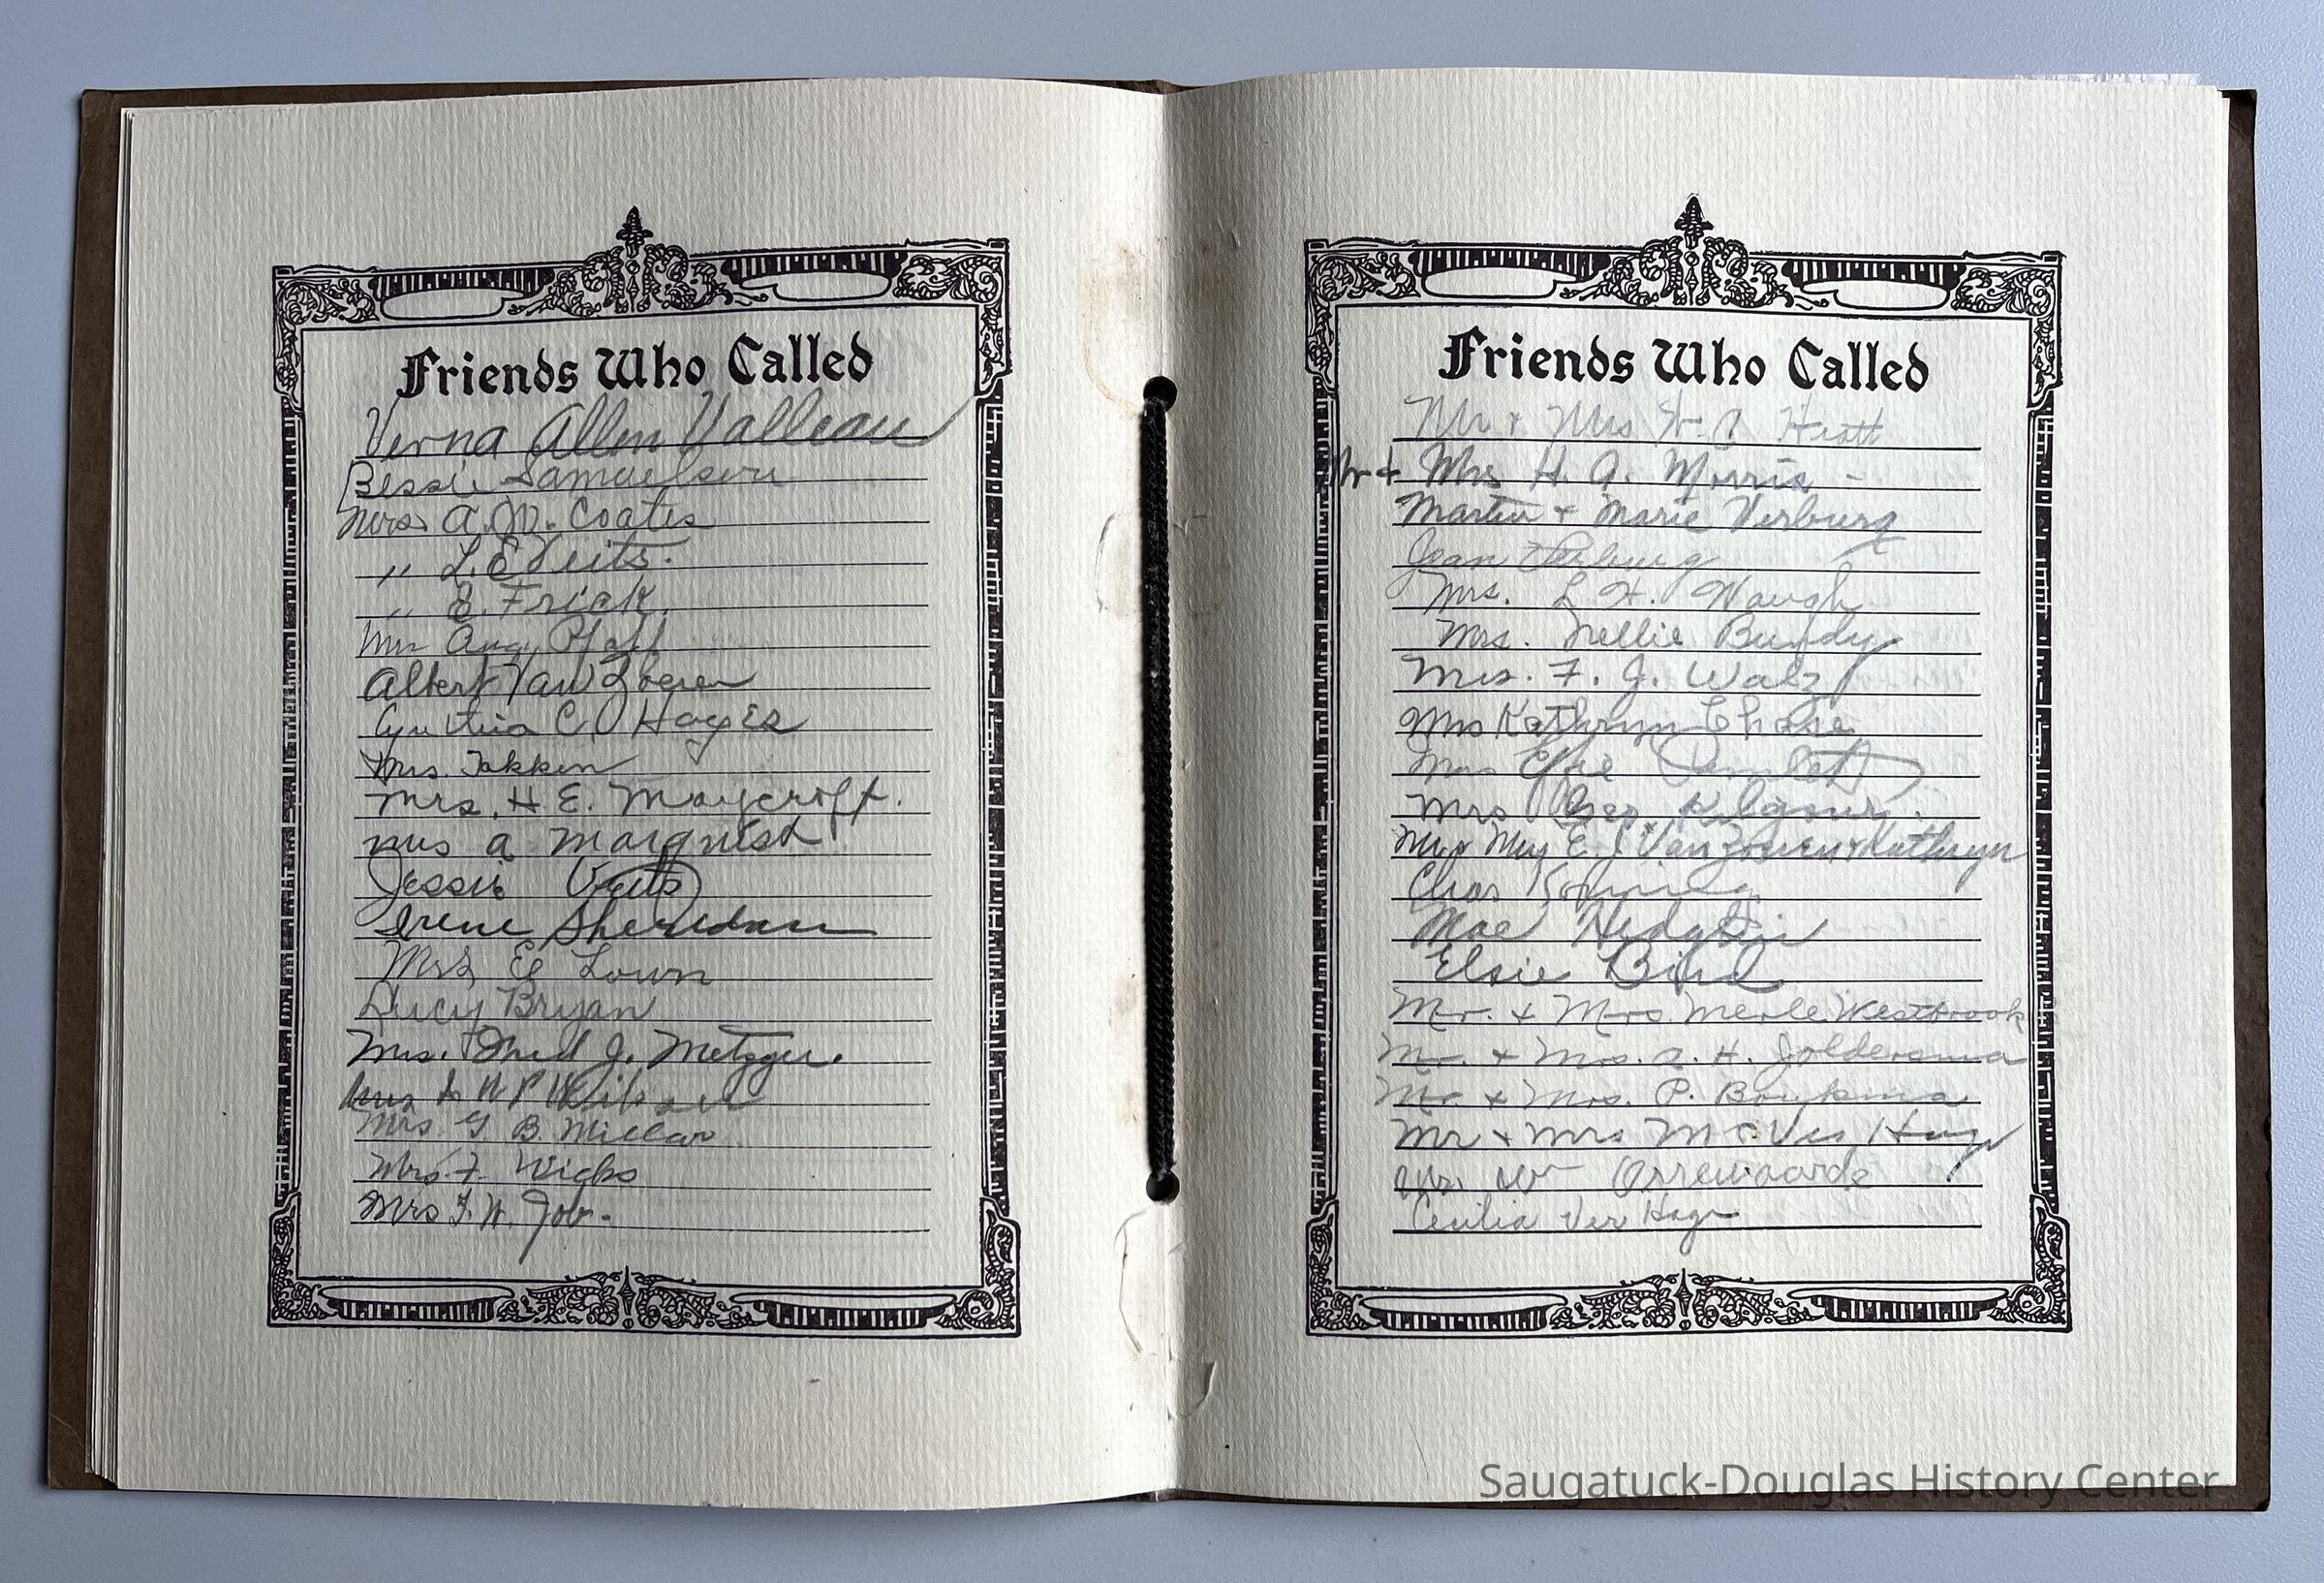 Friends Who Called
Verna Allen Valleau
Bessie Samuelson
Mrs. A. M. Coates
" L. E. Veits.
" E. Frick.
Mrs Aug. Pfaff
Albert Van Zoeren
Cynthia C. Hayes
Mrs. Takken
Mrs. H. E. Maycroft.
Mrs A Marquist
Jessie Veits
Irene Sheridan
Mrs E Lown
Lucy Bryan
Mrs. Fred J. Metzger.
Mrs W P
Mrs. G B. Millar
Mrs. F. Wicks
Mrs F. W. Job.
Friends Who Called
Mr & Mrs W. J. Hiatt
Mr & Mrs H. A. Morris -
Martin & Marie Verburg
Jean Verburg
Mrs. L. H. Waugh
Mrs. Nellie Bundy
Mrs. F. J. Walz
Mrs Kathryn Chase
Mrs Effie
Mrs Geo. Kilgour.
Mr & Mrs E. J. Van Zoeren & Kathryn
Chas Koning
Mae Hedglin
Elsie Bird
Mr. & Mrs. Merle Westbrook
Mr. & Mrs. A. H. Joldersma
Mr. & Mrs. P. Boukma
Mr & Mrs M. Ver Hage
Mr. Wm
Cecilia Ver Hage
Saugatuck-Douglas History Center